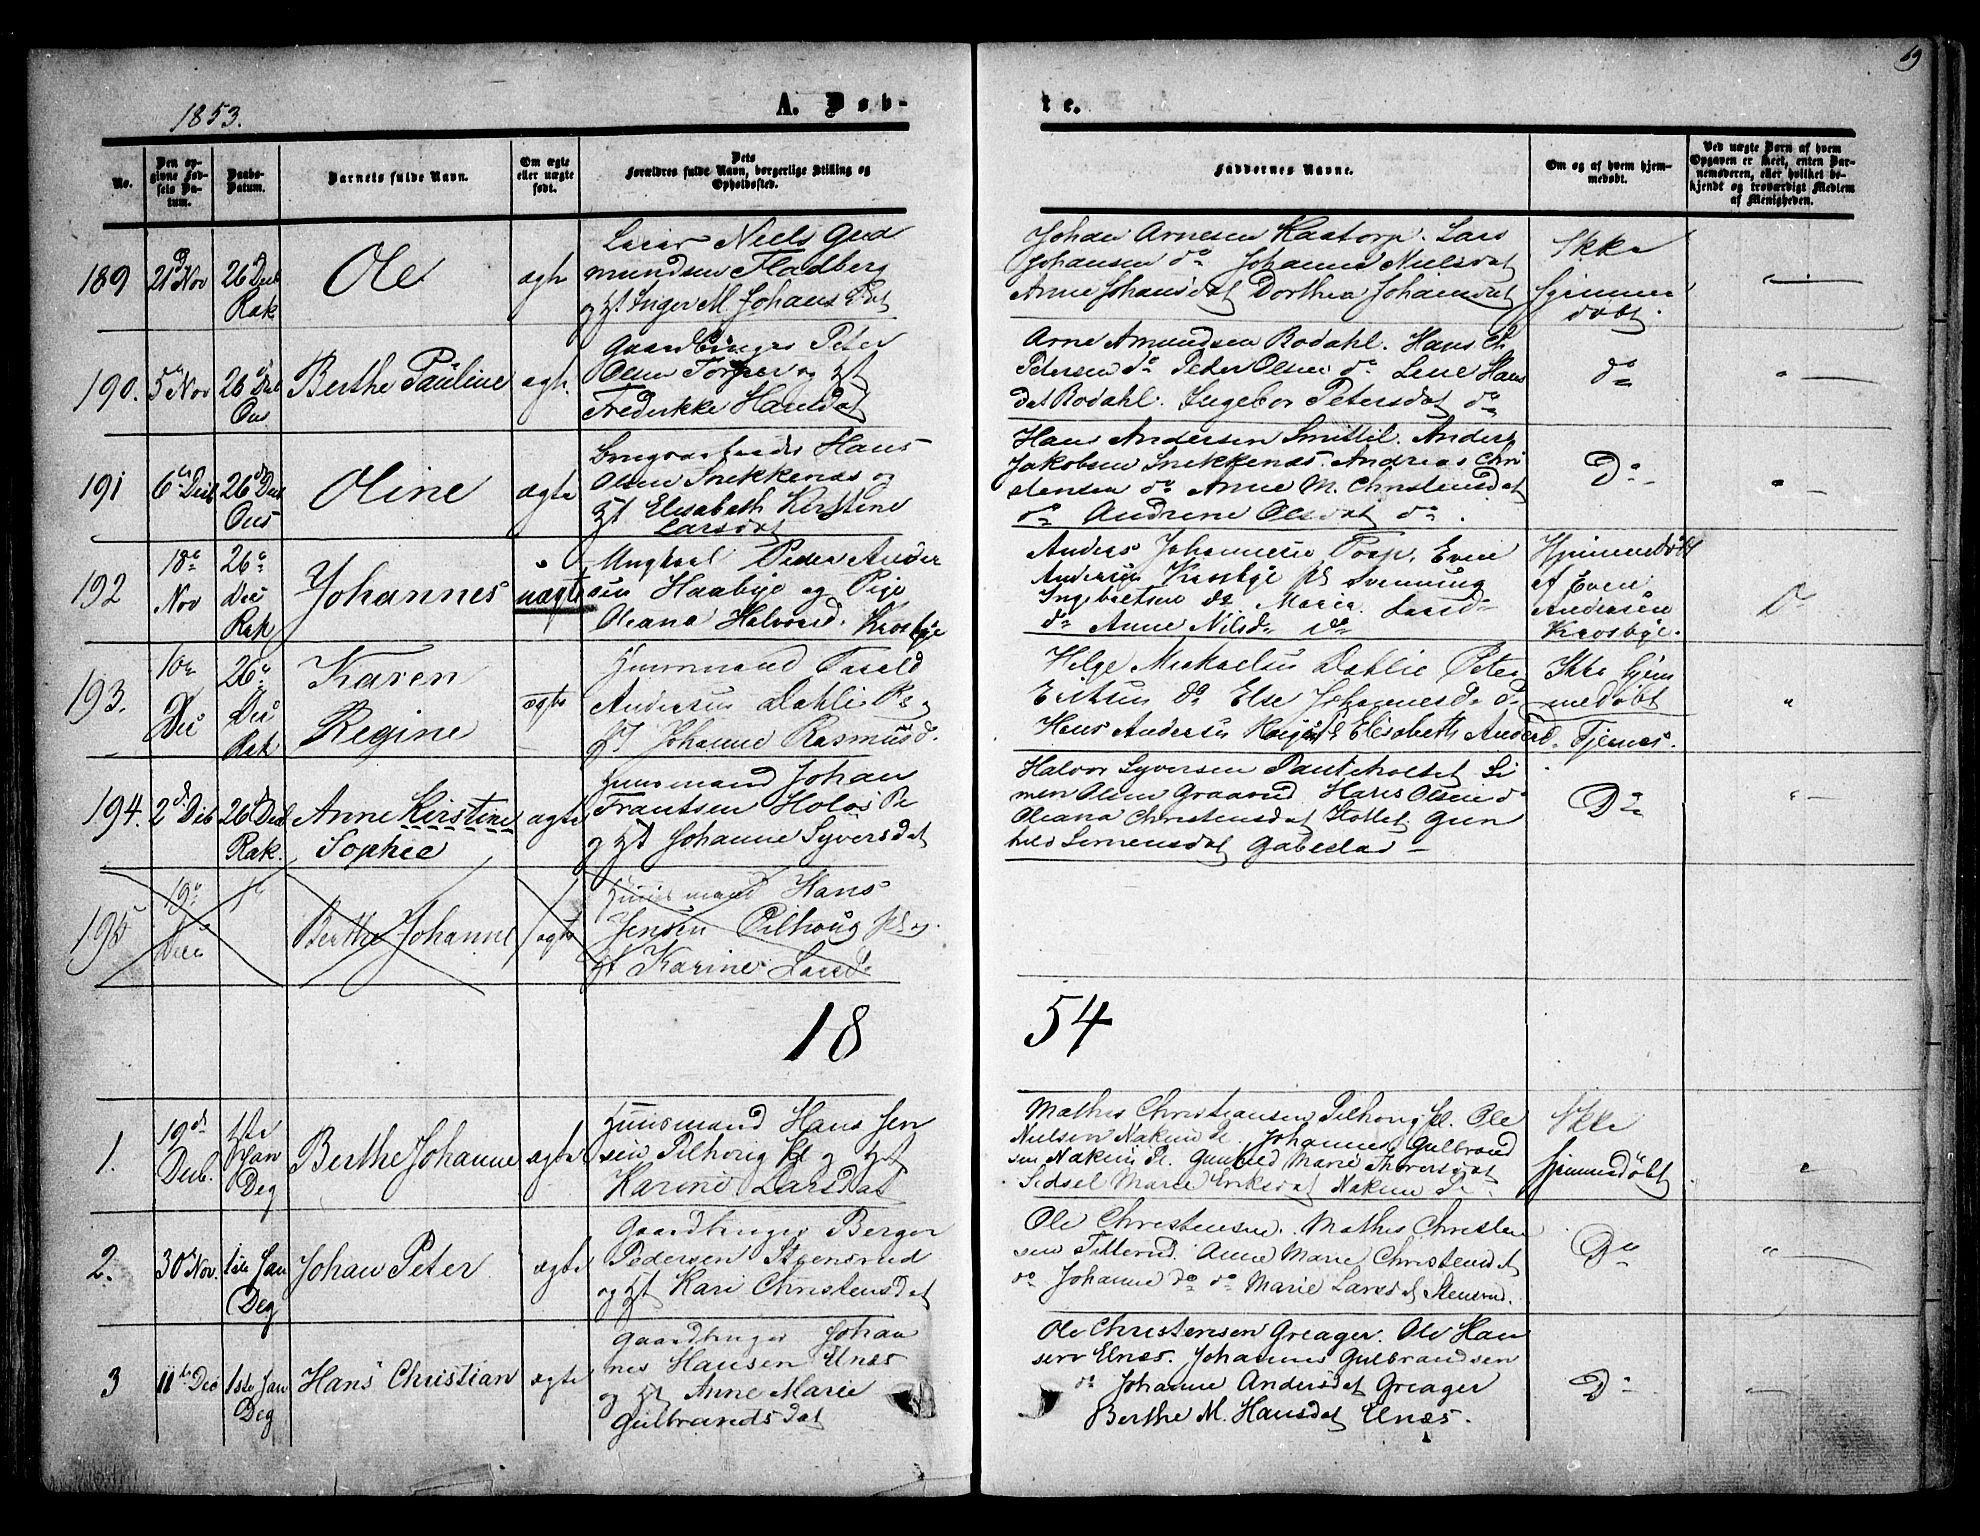 69
1853.
A. Døb-
te.
No.
Den op-
givne Fød-
sels Da-
tum.
Daabs-
Datum.
Barnets fulde Navn.
Om ægte
eller uægte
født.
Dets
Forældres fulde Navn, borgerlige Stilling og
Opholdssted.
Faddernes Navne.
Om og af hvem hjem-
medøbt.
Ved uægte Børn af hvem
Opgaven er skeet, enten Bar-
nemoderen, eller hvilket be-
kjendt og troværdigt Medlem
af Menigheden.
189
21 Nov
26 Deb
Rak
Ole
ægte
Niels Gud
mundsen Fladberg
og H. Inger M. Johans Dat
Johan Arnesen Kaatorp. Lars
Johansen do Johanne Nielsdat
Anne Johansdat Dorthea Johansdat
Ikke
hjemme
døbt.
190.
5 Nov
26 Deb
Ous
Berthe Pauline
ægte
Gaardbruger Peter
Olsen Torper og Ht
Frederikke Hansdat
Arne Amundsen Rodahl. Hans Ch
Petersen do Peter Olsen do Lene Hans
dat Rodahl. Ingebor Petersdat do
do
191
6te Deb
26 Deb
Ous
Oline
ægte
Hans
Olsen Snekkenæs og
Ht Elisabeth Kirstine
Larsdat
Hans Andersen Smittil. Anders
Jakobsen Snekkenæs. Andreas Chri
stensen do Anne M. Christensdat
do Andrine Olsdat do.
Do
192
18de
Nov
26de
Dec
Rak
Johannes
uægte
Ungkarl Peder Ander
sen Haabye og Pige
Oleana Halvorsd. Krosbye
Anders Johannesen Torp, Even
Andersen Krosbye Pl Svenning
Ingebretsen do Maria Larsd
do Anne Nilsd do
Hjemmedøbt
af Even
Andersen
Krosbye.
Do
193.
10de
Dec
26de
Dec
Rak
Karen
Regine
ægte
Huusmand
Andersen Dahlie Pl og
H Johanne Rasmusd.
Helge Mickaelsen Dahlie Peter
do Else Johannesd do
Hans Andersen Elisabeth Andersd. Tjenes.
Ikke hjem
medøbt
194.
2de Deb
26de Deb
Rak.
Anne Kirstine
Sophie
ægte
Huusmand Johan
Frantsen Holøs Pl
og Ht Johanne Syversdat
Halvor Syversen Panteholtet Si
men Olsen Graarud Hans Olsen do
Oleana Christensdat Holtet. Gun
hild Simensdat
Do
195
19de
Dec
1te
Berthe Johanne
ægte
Huusmand Hans
Jensen Pilhoug Pl og
Ht Karine Larsd
18
54
1.
19de
Deb.
1ste
Jan
Deg
Berthe Johanne
ægte
Huusmand Hans Jen
sen Pilhoug Pl og Ht
Karine Larsdat
Mathis Christiansen Pilhoug Pl. Ole
Nielsen Nakim Pl. Johannes Gulbrand
sen Nakim Pl. Gunhild Marie Thorersdat
Sidsel Marie Eriksdat Nakim Pl
Ikke
hjemmedøbt
2.
30 Nov.
1ste Jan
Deg
Johan Peter
ægte
Gaardbruger Berger
Pedersen Steensrud
og Ht Kari Christensdat
Ole Christensen. Mathis Christen
sen Titterud. Anne Marie Christensdat
do Johanne do do Marie Larsdat Stensrud.
Do
3
11te Dec
1ste Jan
Deg
Hans Christian
ægte
Gaardbruger Johan
nes Hansen Elnæs
og Ht Anne Marie
Gulbrandsdat
Ole Christensen Greager. Ole Han
sen Elnæs. Johannes Gulbrandsen
do Johanne Andersdat Greager
Berthe M. Hansdat Elnæs.
Do